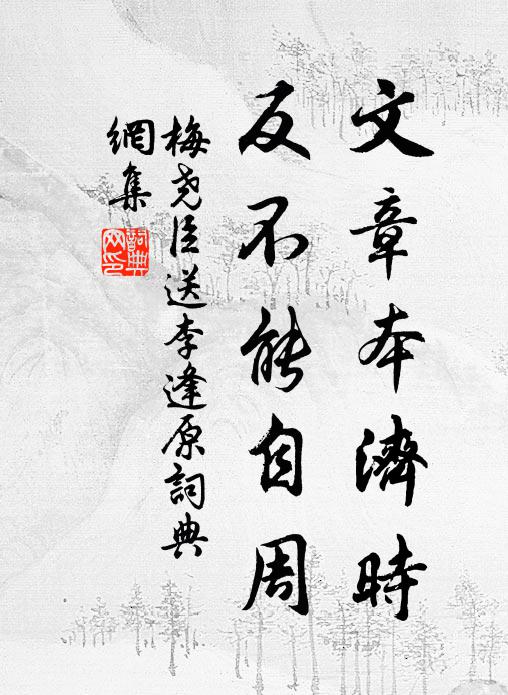 文章本濟時
反不能自周
梅堯臣送李逢原詞典
網集
詞典網印